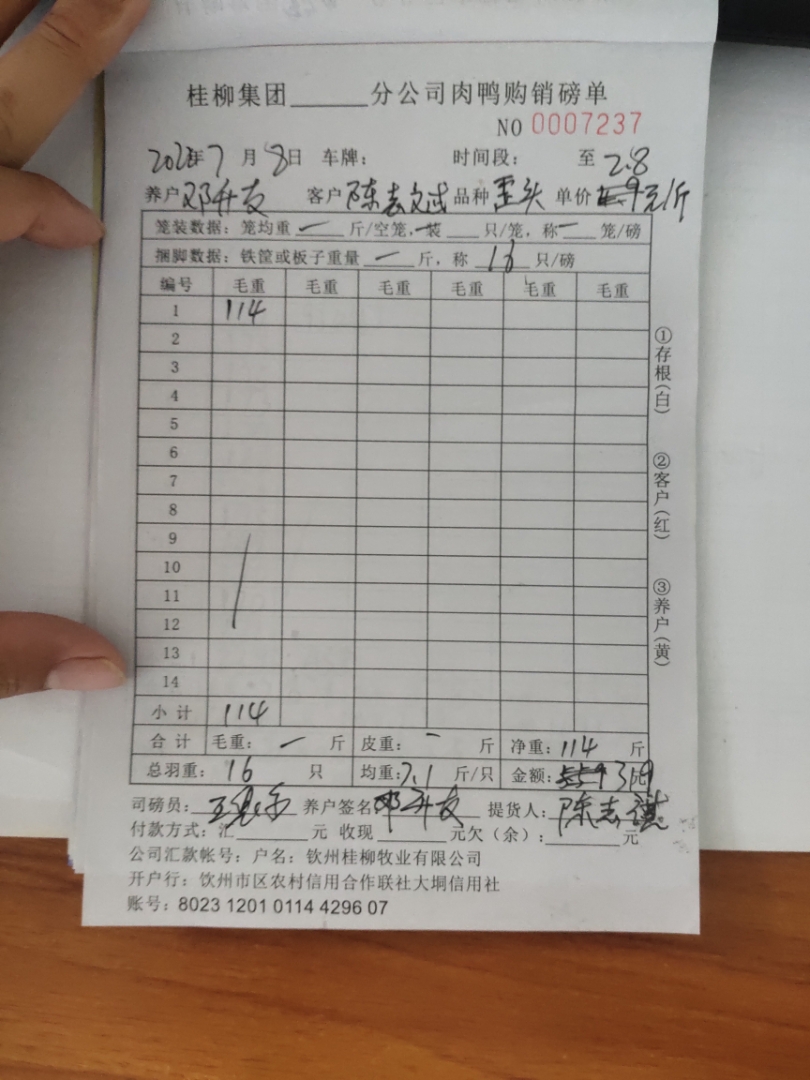 桂柳集团______分公司肉鸭购销磅单
NO 0007237
年7月8日 车牌： 时间段： 至 2.8
养户 邓升友 客户 陈志 品种 歪头 单价 9元/斤
笼装数据：笼均重 一 斤/空笼，一装___只/笼，称 一 笼/磅
捆脚数据：铁筐或板子重量 一 斤，称 16 只/磅
编号 毛重 毛重 毛重 毛重 毛重 毛重
1 114
2
3
4
5
6
7
8
9
10
11
12
13
14
小计 114
合计 毛重： 一 斤 皮重： 一 斤 净重：114 斤
总羽重： 16 只 均重：7.1 斤/只 金额：
司磅员： 养户签名 邓升友 提货人：陈志
付款方式：汇______元 收现______元欠（余）：______元
公司汇款帐号：户名：钦州桂柳牧业有限公司
开户行：钦州市区农村信用合作联社大垌信用社
账号：8023 1201 0114 4296 07
①存根（白）
②客户（红）
③养户（黄）